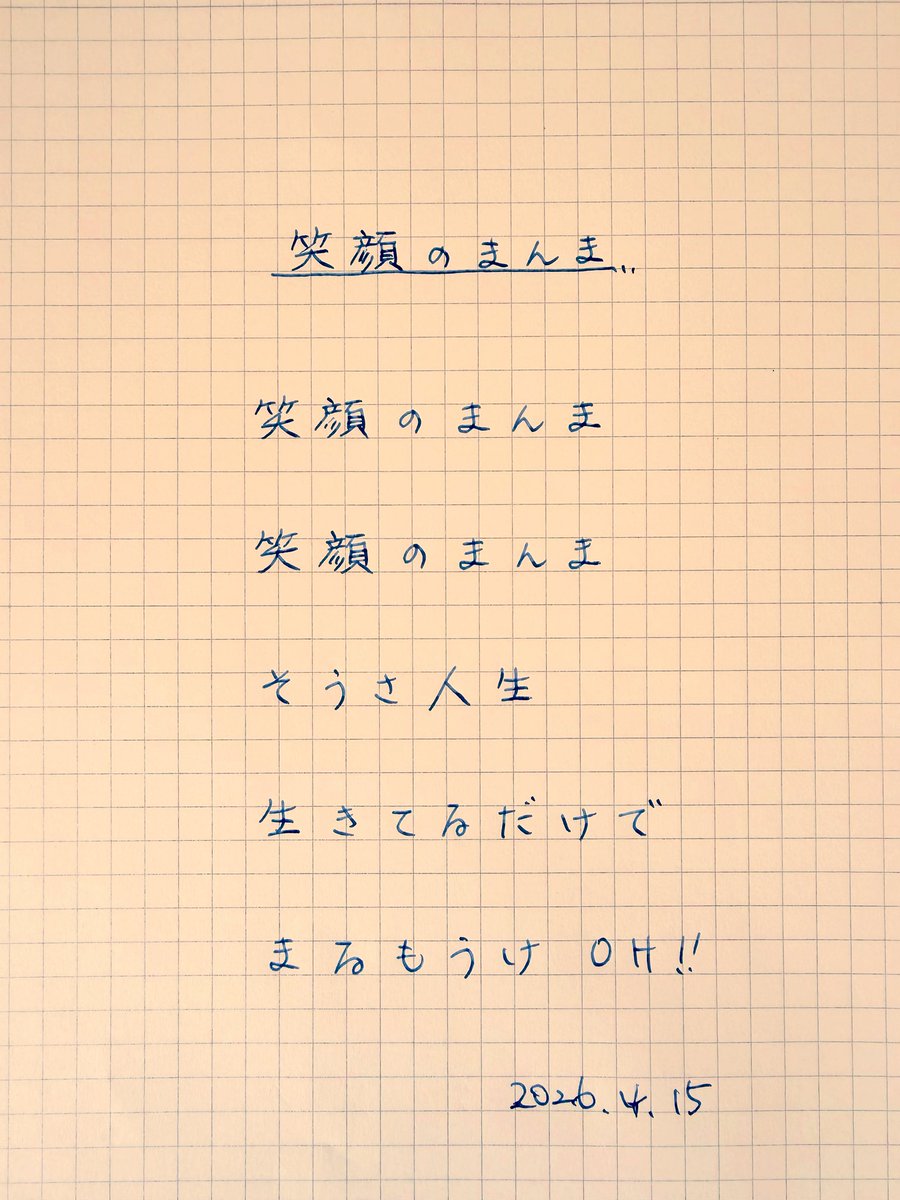 笑顔のまんま
笑顔のまんま
笑顔のまんま
そうさ人生
生きてるだけで
まるもうけ OH!!
2026.4.15